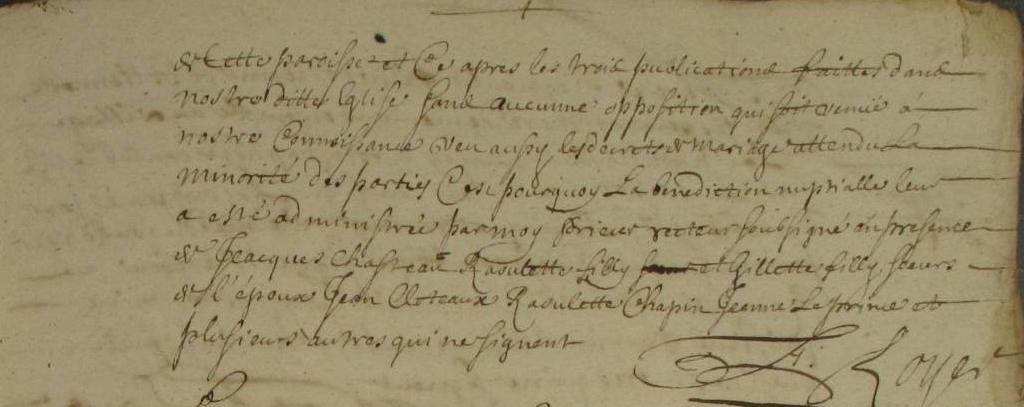 de Cette paroisse et Ce apres les trois publications faittes dans
nostre ditte Eglise sans aucunne opposition qui soit venüe à
nostre Connoissance veu aussy les decrets de mariage attendu La
minorité des parties C'est pourquoy La bénédiction nuptialle leur
a esté administrée par moy prieur recteur soubsigné en presence
de Jacques Chasteau Raoulette filly et Gillette filly soeurs
de l'époux Jean Cloteaux Raoulette Chapin Jeanne Le prince et
plusieurs autres qui ne signent
A. Royer